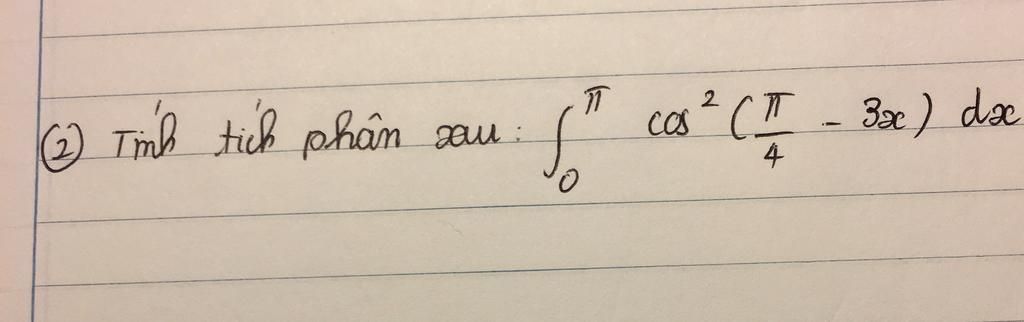 ② Tính tích phân sau: ∫₀^π cos²(π/4 - 3x) dx